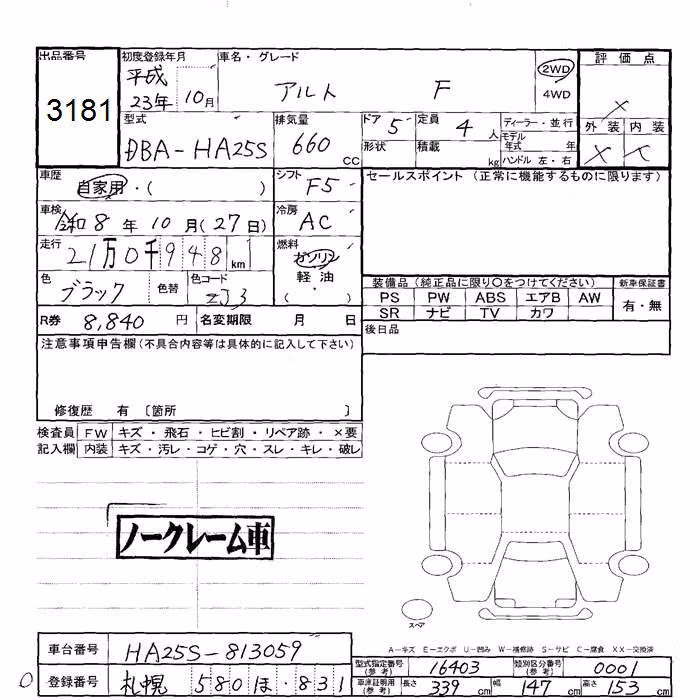 出品番号
3181
初度登録年月
平成
23年 10月
車名・グレード
アルト F
2WD
4WD
評価点
×
外装 内装
× ×
型式
DBA-HA25S
排気量
660 cc
ドア 5
形状
定員 4 人
積載 kg
ディーラー・並行
モデル年式 年
ハンドル 左・右
車歴
自家用・( )
シフト
F5
セールスポイント(正常に機能するものに限ります)
車検
令和8年 10月(27日)
冷房
AC
走行
21万0千948km
燃料
ガソリン
軽油
・( )
色
ブラック
色替
色コード
ZJ3
装備品(純正品に限り〇をつけてください)
新車保証書
PS PW ABS エアB AW
有・無
SR ナビ TV カワ
R券 8,840 円
名変期限 月 日
後日品
注意事項申告欄(不具合内容等は具体的に記入して下さい)
修復歴 有 〔箇所 〕
検査員
記入欄
FW キズ・飛石・ヒビ割・リペア跡・×要
内装 キズ・汚レ・コゲ・穴・スレ・キレ・破レ
ノークレーム車
スペア
A-キズ E-エクボ U-凹み W-補修跡 S-サビ C-腐食 XX-交換済
車台番号 HA25S-813059
型式指定番号(参考) 16403
類別区分番号(参考) 0001
登録番号 札幌 580 ほ・831
車庫証明用(参考) 長さ 339cm 幅 147cm 高さ 153cm